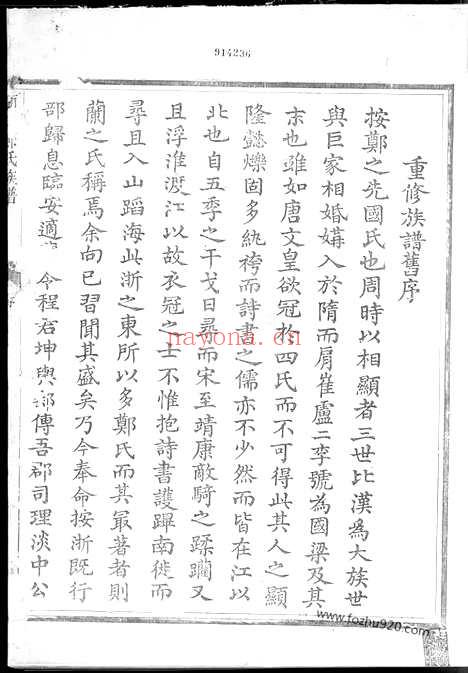 914236
重修族譜舊序
按鄭之先國氏也周時以相顯者三世比漢為大族世
與巨家相婚媾入於隋而肩崔盧二李號為國梁及其
末也雖如唐文皇欲冠於四氏而不可得此其人之顯
隆懿爍固多紈袴而詩書之儒亦不少然而皆在江以
北也自五季之干戈日尋而宋至靖康敵騎之蹂躪又
且浮淮渡江以故衣冠之士不惟抱詩書護譁南徙而
尋且入山蹈海此浙之東所以多鄭氏而其最著者則
蘭之氏稱焉余向已習聞其盛矣乃今奉命按浙既行
部歸息臨安適 令程君坤輿 傳吾郡司理淡中公
氏族譜
序
nayona.cn
www.fozhu920.com